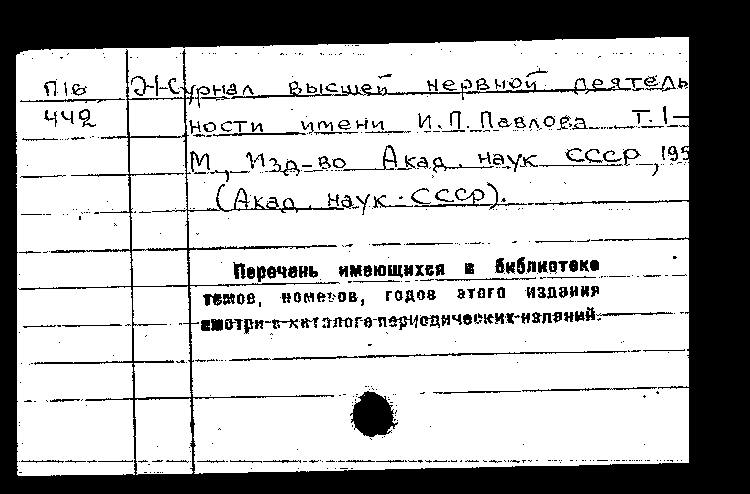 П18 Журнал высшей нервной деятель
442 ности имени И.П.Павлова. Т.1—
М., Изд-во Акад. наук СССР, 195
(Акад. наук СССР).
Перечень имеющихся в библиотеке
томов, номеров, годов этого издания
смотри в каталоге периодических изданий.